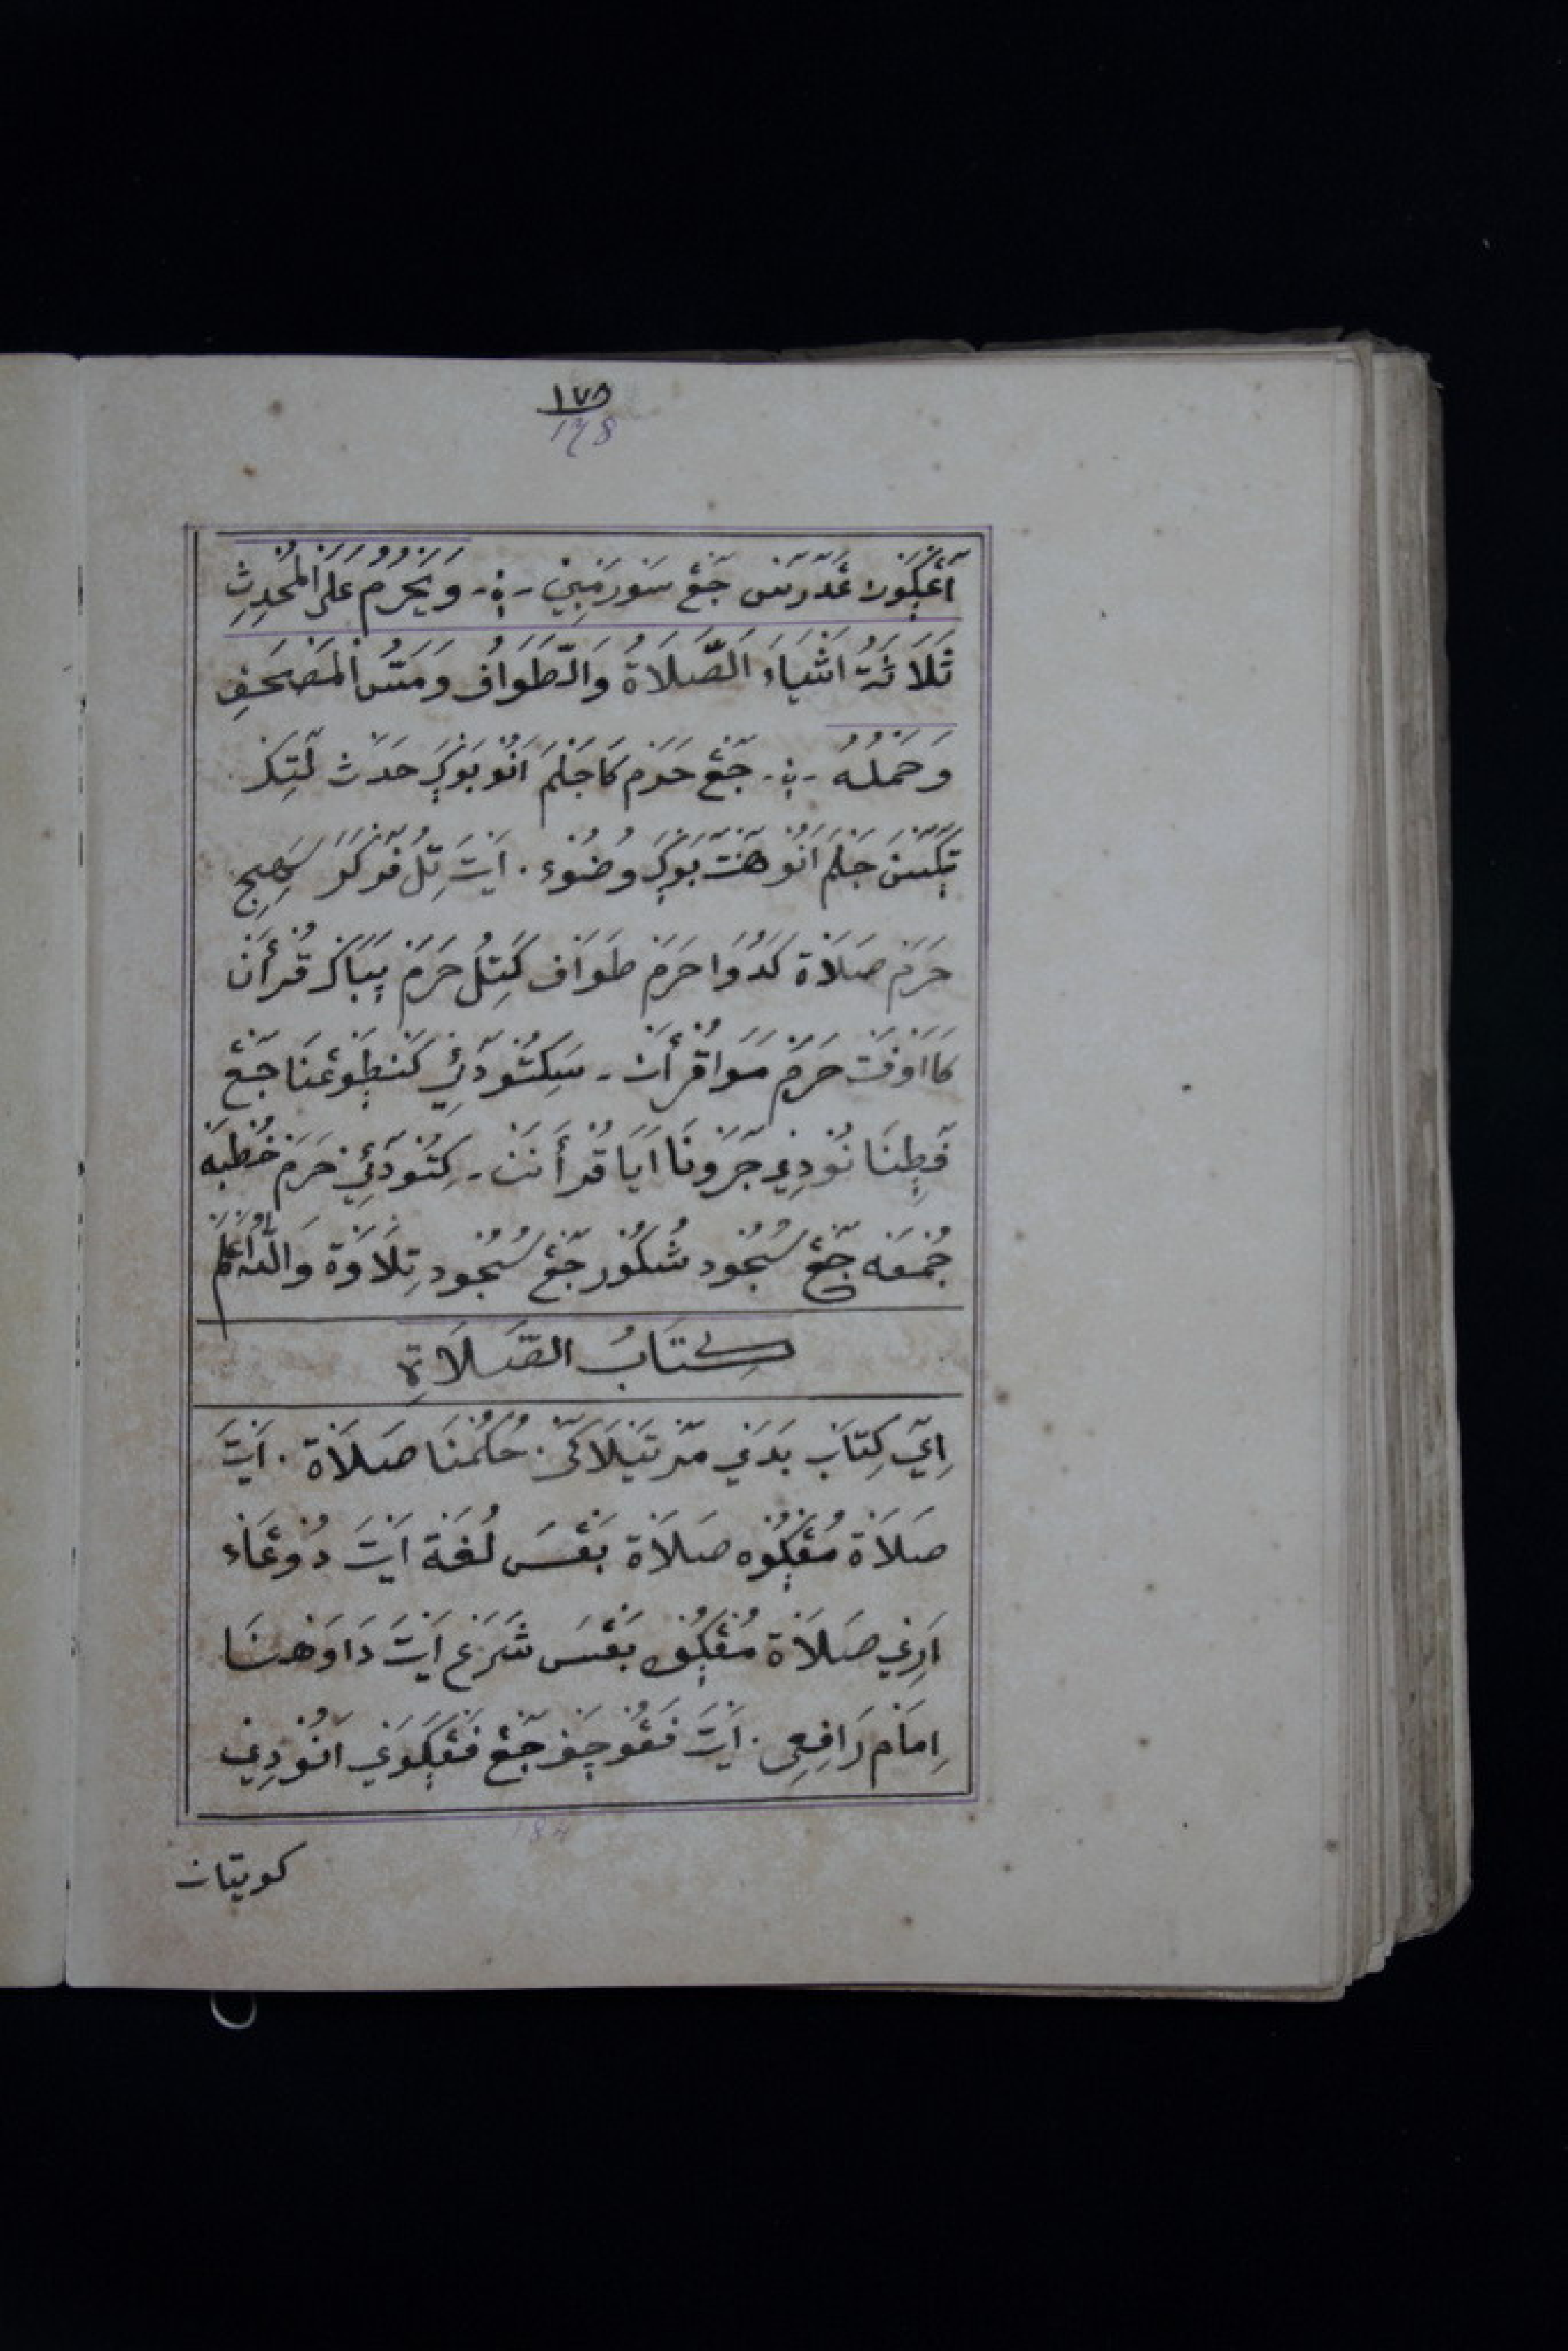 ١٧٨
178
آعْڮَوَنْ عَدَرَسَنْ جَڠْ سَنورمَبِيْ - ۏ - وَيَحْرُمُ عَلَى الْمُحْدِثِ
ثَلَاثَةُ اَشْيَاءَ اَلصَّلَاةُ وَالطَّوَافُ وَمَسُّ الْمَصْحَفِ
وَحَمْلُهُ - ۏ - جَڠْ حَرَمْ كَاجَلْمَ اَنُو بَوْڮَ حَدَثْ لَتِكْ
تٜڮٜسْنَ جَلْمَ اَنُو هَنْتَ بَوْڮَ وُضُوْء . اَيْتَ تِلُ ڤَرْكَرَ سِهِجِ
حَرَمْ صَلَاةْ كَدُوَا حَرَمْ طَوَافْ كَتِلُ حَرَمْ پٜپَاكْ قُرْأَنْ
كَااَوْڤَتْ حَرَمْ مَوَا قُرْأَنْ - سَكِتُودٜئِ كَنطٜوْعْنَا جَڠْ
ڤَطِنَا نُودِيْ جَرَوْنَا اَيَا قُرْأَنَنْ - كِتُودٜئِ حَرَمْ خُطْبَهْ
جُمْعَهْ جَڠْ سُجُودْ شُكُورْ جَڠْ سُجُودْ تِلَاوَةْ وَاللهُ اَعْلَمْ
كِتَابُ الصَّلَاةِ
اِيَ كِتَابْ بَدَيْ مَرْتٜيْلَاكَنْ . حُكُمْنَا صَلَاةْ . اَيْتَ
صَلَاةْ مُڠْڮُوهْ صَلَاةْ بَڠْسَ لُغَةْ اَيْتَ دُوْعَاء
اَرِيْ صَلَاةْ مُڠْڮُهْ بَڠْسَ شَرَعْ اَيْتَ دَاوَهْنَا
اِمَامْ رَافِعِى . اَيْتَ ڤَڠُوچَڤْ جَڠْ ڤَڠْڮَوَيْ اَنُودِيْ
كويتان